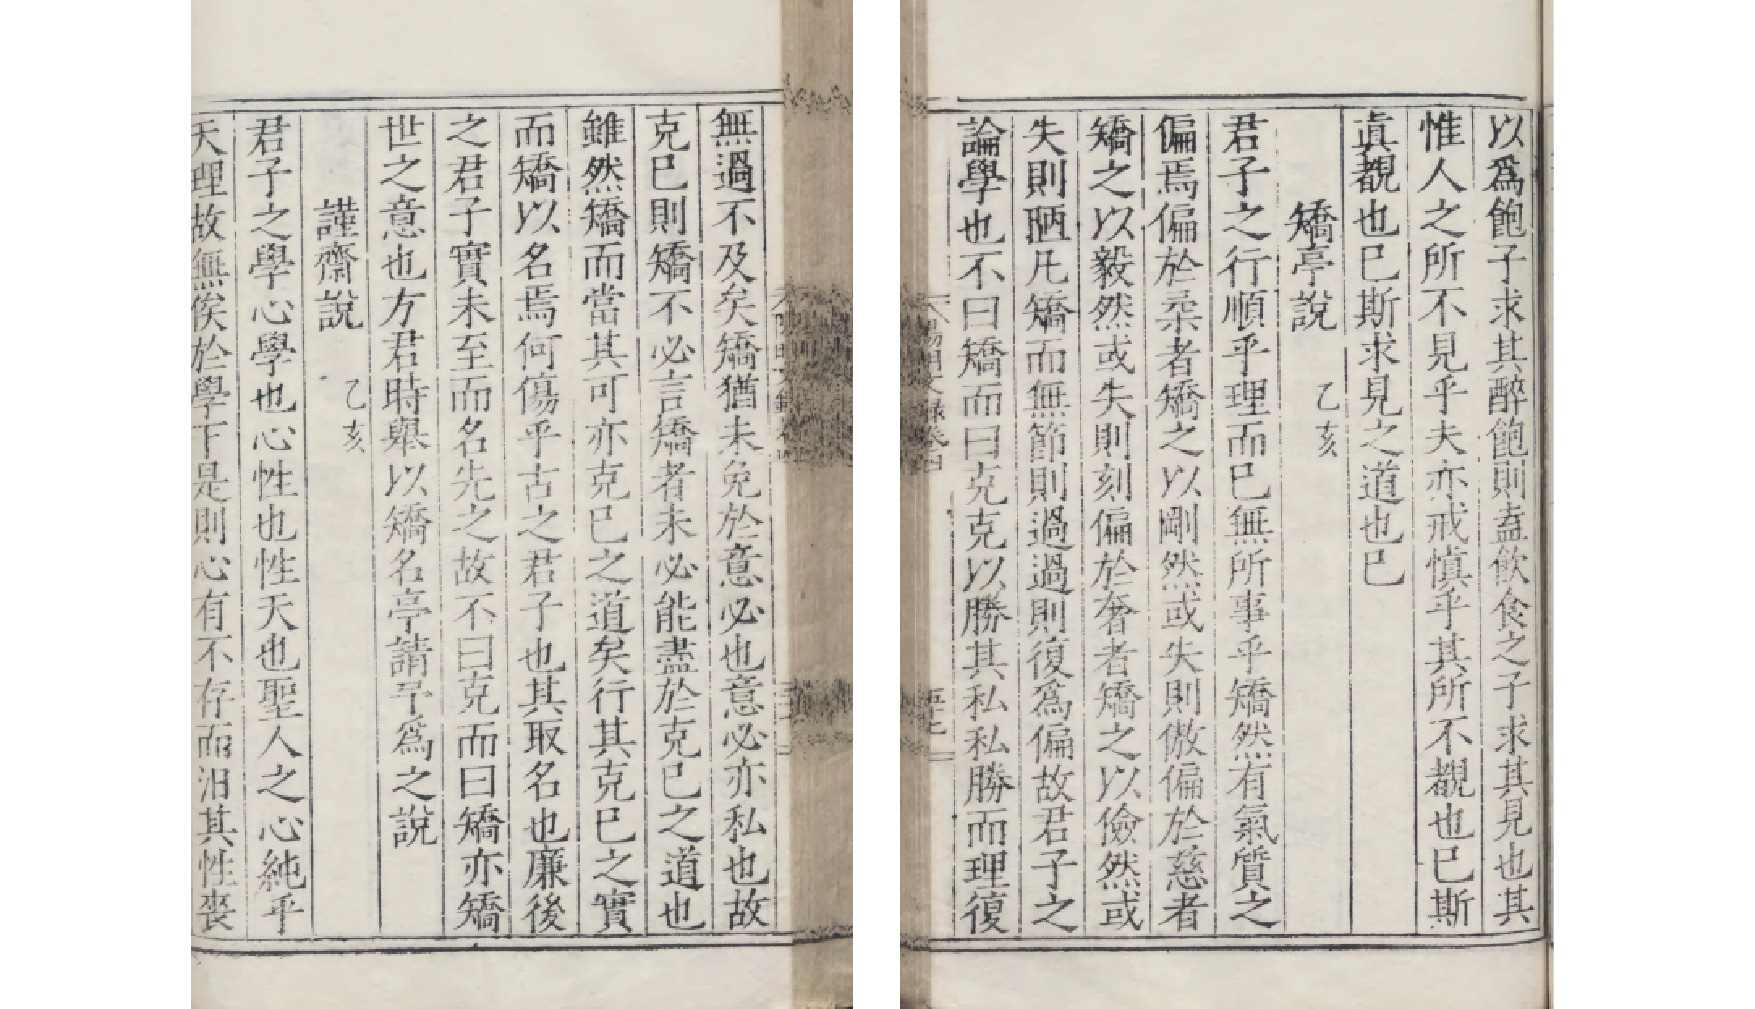 以爲飽子求其醉飽則盍飲食之子求其見也其
惟人之所不見乎夫亦戒慎乎其所不覩也已斯
真覩也已斯求見之道也已
矯亭說 乙亥
君子之行順乎理而已無所事乎矯然有氣質之
偏焉偏於柔者矯之以剛然或失則傲偏於慈者
矯之以毅然或失則刻偏於奢者矯之以儉然或
失則陋凡矯而無節則過過則復爲偏故君子之
論學也不曰矯而曰克克以勝其私私勝而理復
無過不及矣矯猶未免於意必也意必亦私也故
克己則矯不必言矯者未必能盡於克己之道也
雖然矯而當其可亦克己之道矣行其克己之實
而矯以名焉何傷乎古之君子也其取名也廉後
之君子實未至而名先之故不曰克而曰矯亦矯
世之意也方君時舉以矯名亭請予爲之說
謹齋說 乙亥
君子之學心學也心性也性天也聖人之心純乎
天理故無俟於學下是則心有不存而汨其性喪